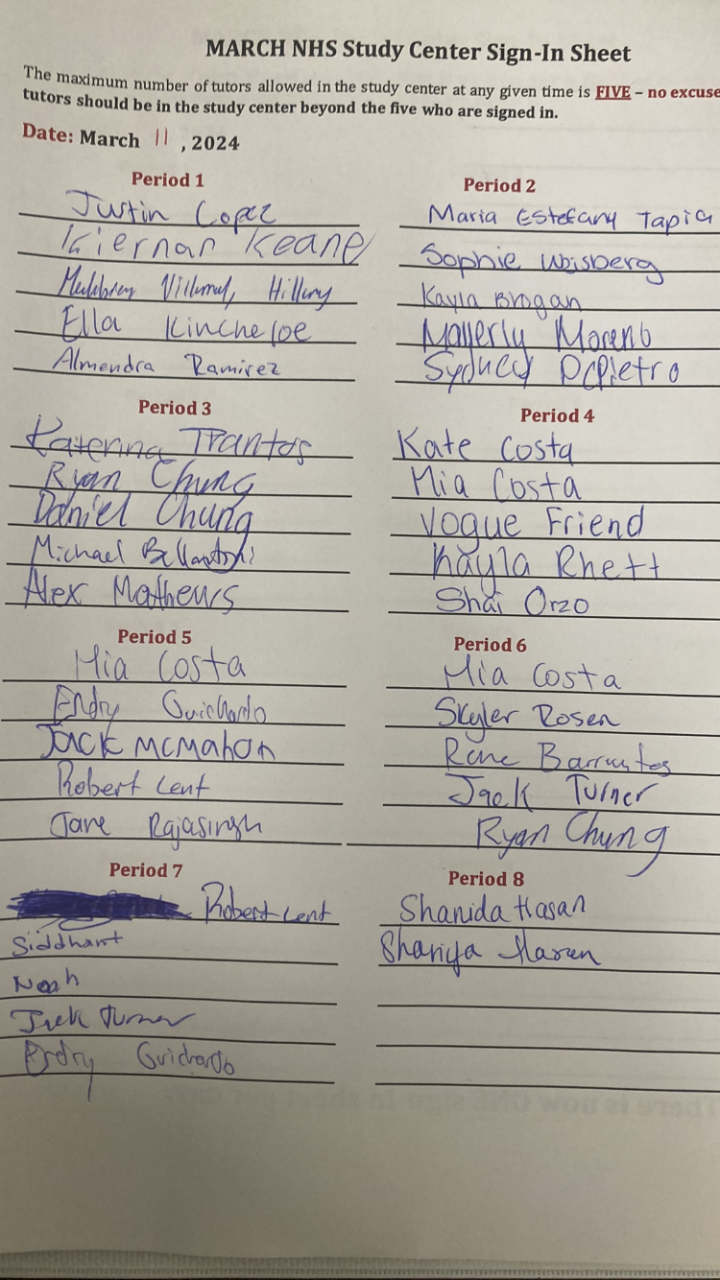 MARCH NHS Study Center Sign-In Sheet
The maximum number of tutors allowed in the study center at any given time is FIVE – no excuse
tutors should be in the study center beyond the five who are signed in.
Date: March 11, 2024
Period 1
Justin Lopez
Kiernan Keane
Hillary
Ella Kincheloe
Almendra Ramirez
Period 2
Maria Estefany Tapia
Sophie Weisberg
Kayla Brogan
Mayerly Moreno
Sydney DePietro
Period 3
Katerina Trantos
Ryan Chung
Daniel Chung
Michael
Alex Mathews
Period 4
Kate Costa
Mia Costa
Vogue Friend
Kayla Rhett
Shai Orzo
Period 5
Mia Costa
Endry Guichardo
Jack McMahon
Robert Lent
Jane Rajasingh
Period 6
Mia Costa
Skyler Rosen
Rene Barrientos
Jack Turner
Ryan Chung
Period 7
Robert Lent
Siddhant
Noah
Jack Turner
Endry Guichardo
Period 8
Shanida Hasan